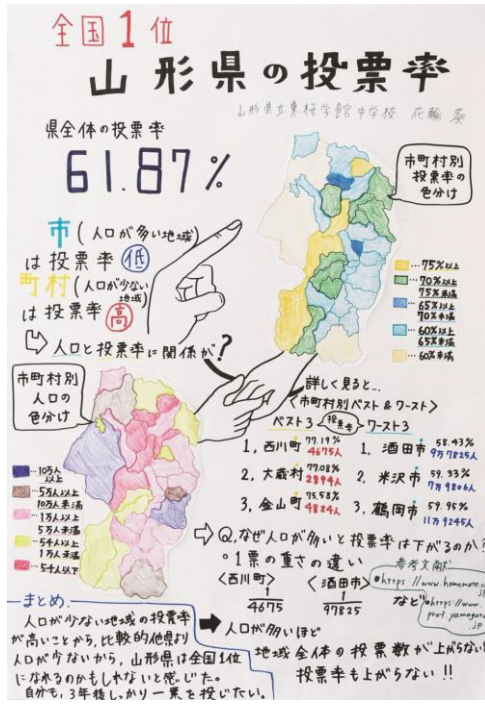 全国1位
山形県の投票率
山形県立東桜学館中学校 花輪 葵
県全体の投票率
61.87%
市町村別
投票率の
色分け
市(人口が多い地域)
は投票率 低
町村(人口が少ない
地域)
は投票率 高
⇨人口と投票率に関係が?
…75%以上
…70%以上
75%未満
…65%以上
70%未満
…60%以上
65%未満
…60%未満
市町村別
人口の
色分け
…10万人
以上
…5万人以上
10万人未満
…1万人以上
5万人未満
…5千人以上
1万人未満
…5千人以下
詳しく見ると…
〈市町村別ベスト&ワースト〉
ベスト3 投票率 ワースト3
1, 西川町 77.19% 4675人
2, 大蔵村 77.08% 2894人
3, 金山町 75.58% 4824人
1. 酒田市 58.43% 9万7825人
2. 米沢市 59.33% 7万9806人
3. 鶴岡市 59.95% 11万9245人
⇨Q.なぜ人口が多いと投票率は下がるのか?
○1票の重さの違い
〈西川町〉 〈酒田市〉
1/4675 1/97825 など
➡人口が多いほど
地域全体の投票数が上がらない
投票率も上がらない!!
参考文献
●https://www.
●https://www.
pref.yamagata.
jp
まとめ.
人口が少ない地域の投票率
が高いことから、比較的他県より
人口が少ないから、山形県は全国1位
になれるのかもしれないと感じた。
自分も、3年後しっかり一票を投じたい。